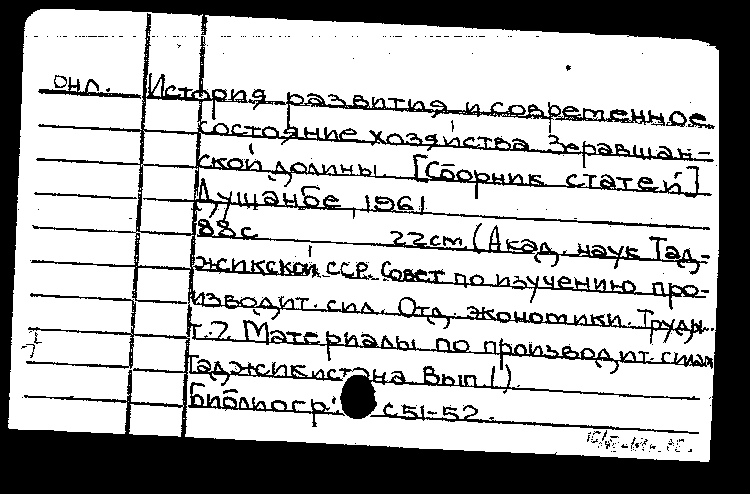 онл. История развития и современное
состояние хозяйства Зеравшан-
ской долины. [Сборник статей]
Душанбе, 1961
88с 22cm. (Акад. наук Тад-
жикской ССР. Совет по изучению про-
изводит. сил. Отд. экономики. Труды.
т.7. Материалы по производит. силам
Таджикистана. Вып 1).
Библиогр: с51-52.